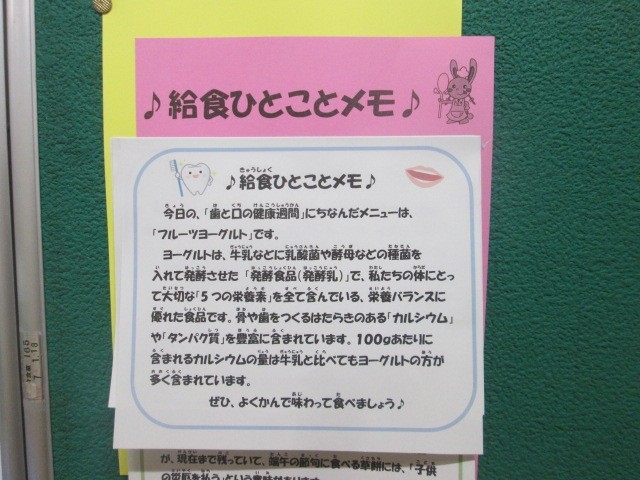 ♪給食ひとことメモ♪
きゅうしょく
♪給食ひとことメモ♪
今日の、「歯と口の健康週間」にちなんだメニューは、
「フルーツヨーグルト」です。
ヨーグルトは、牛乳などに乳酸菌や酵母などの種菌を
入れて発酵させた「発酵食品（発酵乳）」で、私たちの体にとっ
て大切な「５つの栄養素」を全て含んでいる、栄養バランスに
優れた食品です。骨や歯をつくるはたらきのある「カルシウム」
や「タンパク質」を豊富に含まれています。100gあたりに
含まれるカルシウムの量は牛乳と比べてもヨーグルトの方が
多く含まれています。
ぜひ、よくかんで味わって食べましょう♪
が、現在まで残っていて、端午の節句に食べる草餅には、「子供
の災厄を払う」という意味があります。